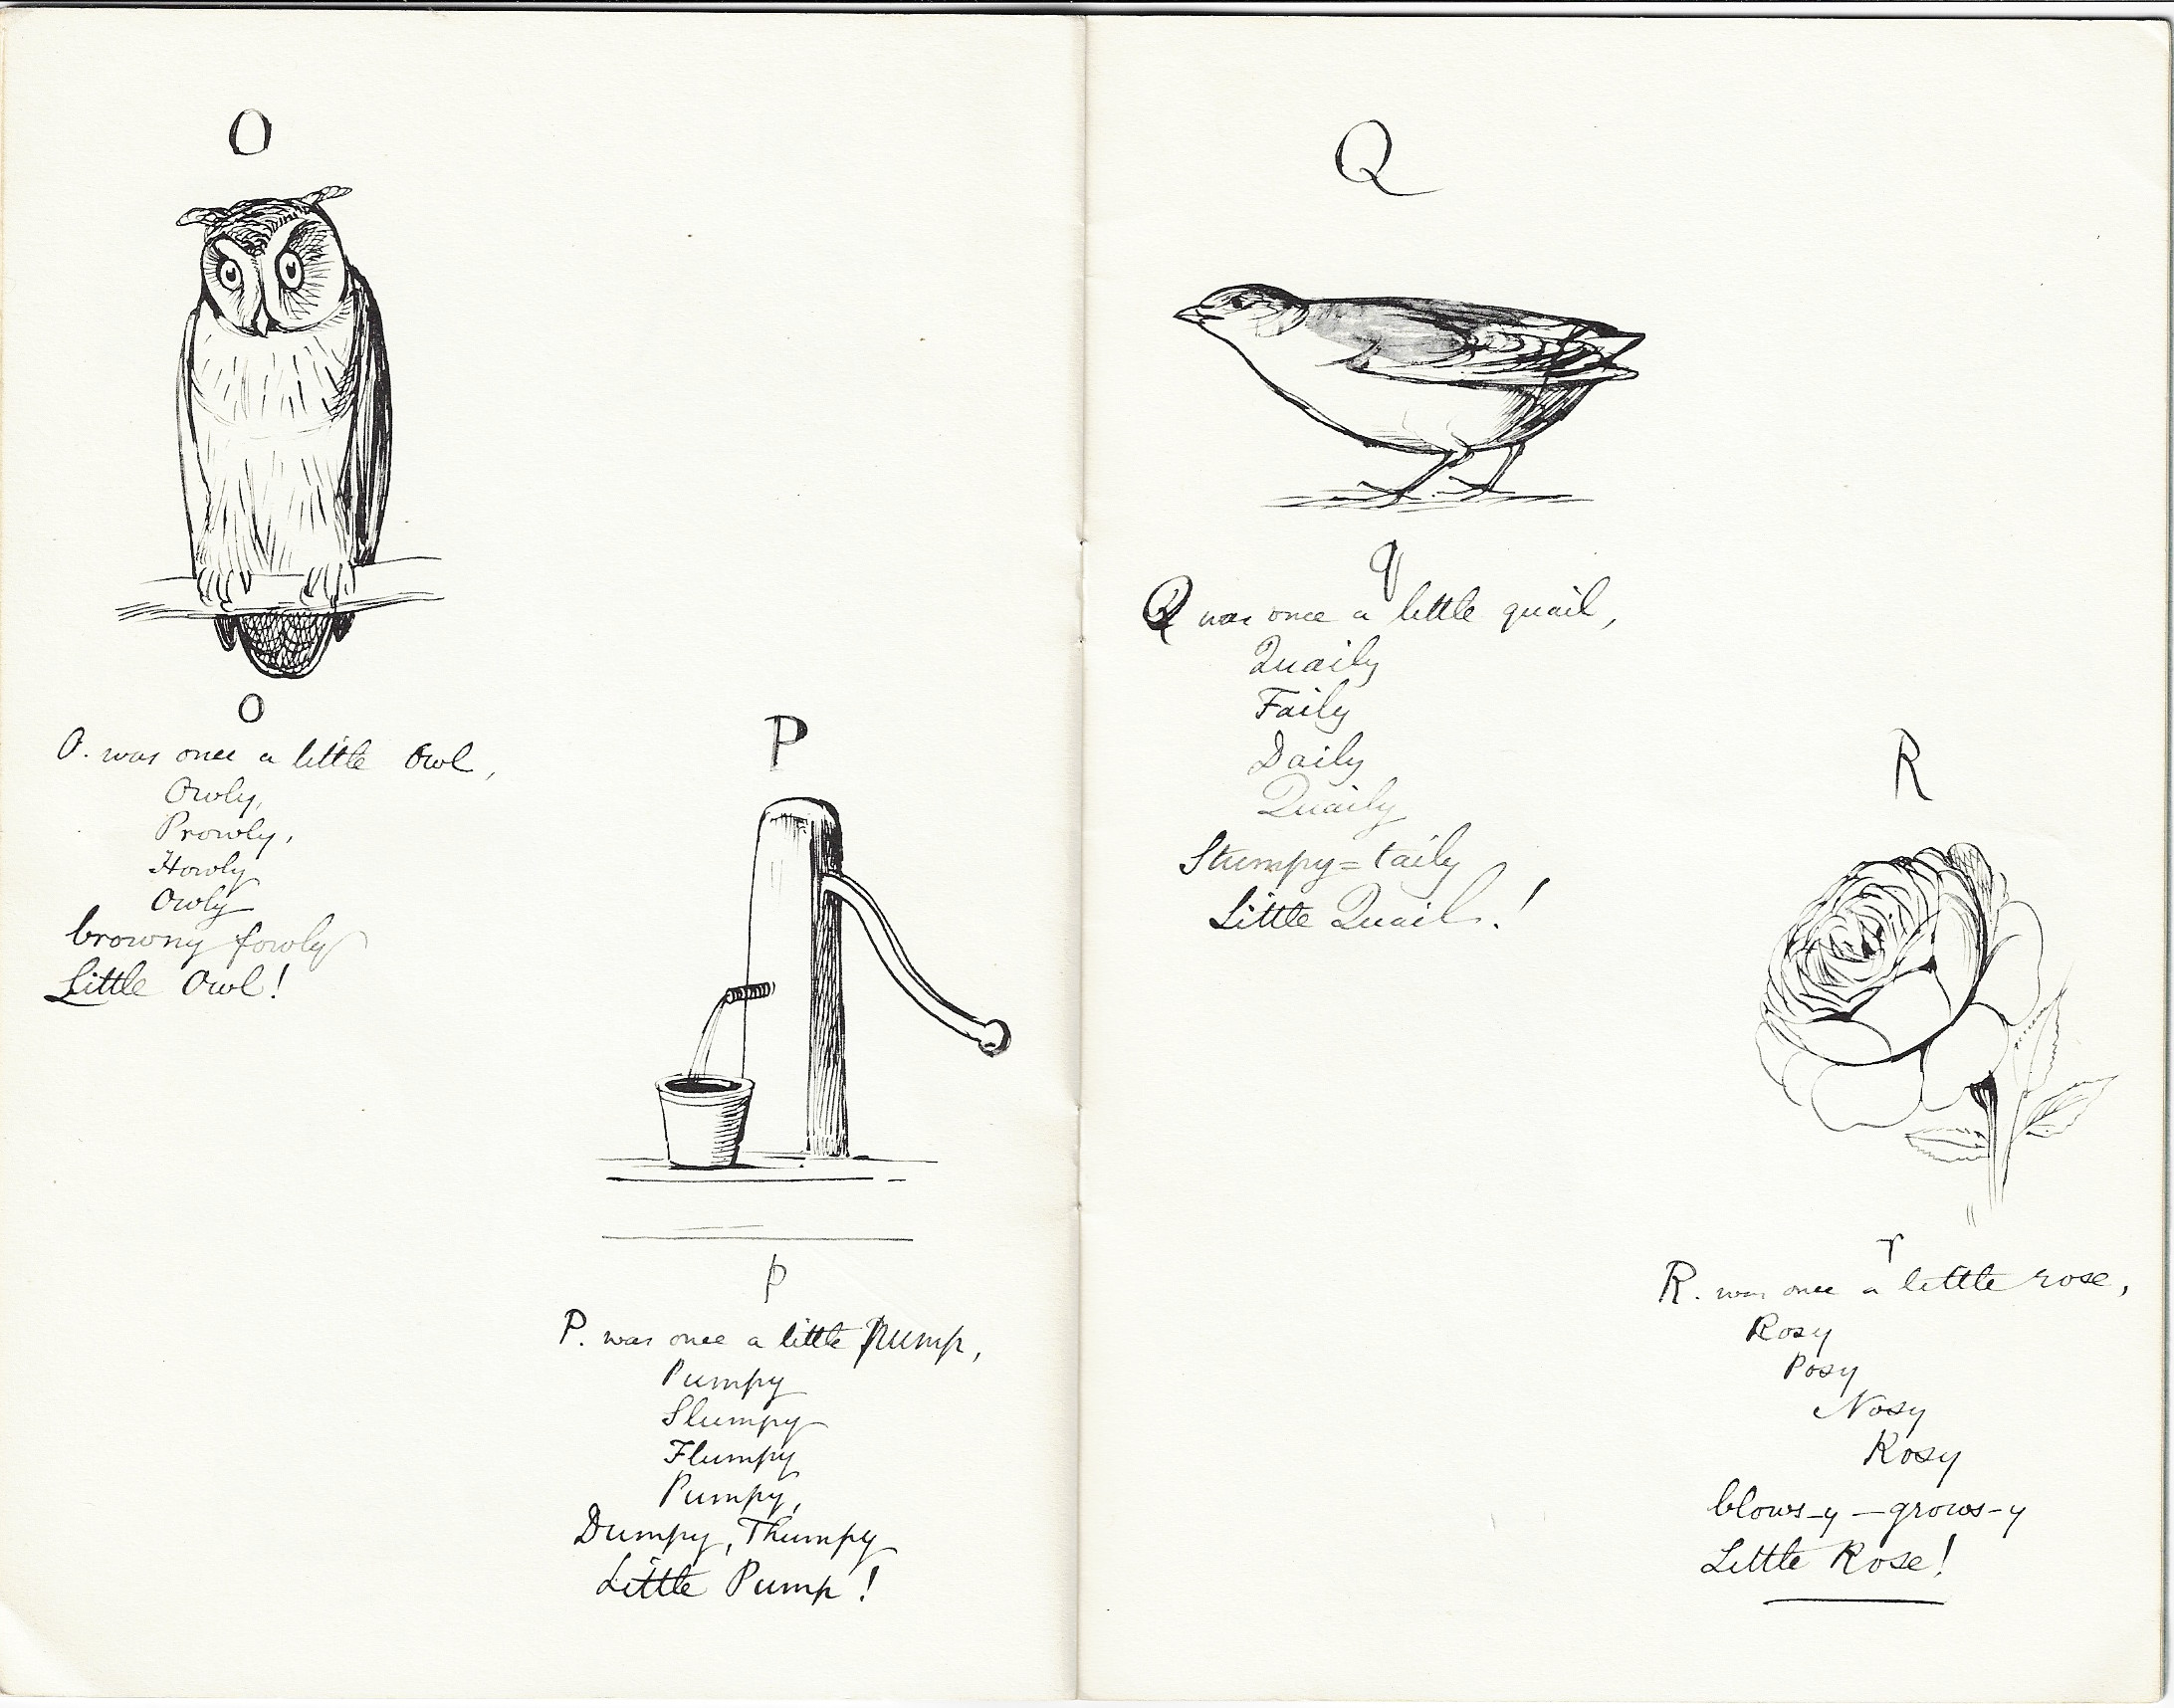 O
o
O. was once a little Owl,
Owly,
Prowly,
Howly
Owly
browny fowly
Little Owl!
P
p
P. was once a little Pump,
Pumpy
Slumpy
Flumpy
Pumpy,
Dumpy, Thumpy
Little Pump!
Q
q
Q was once a little quail,
Quaily
Faily
Daily
Quaily
Stumpy=taily
Little Quail!
R
r
R. was once a little rose,
Rosy
Posy
Nosy
Rosy
blows-y — grows-y
Little Rose!